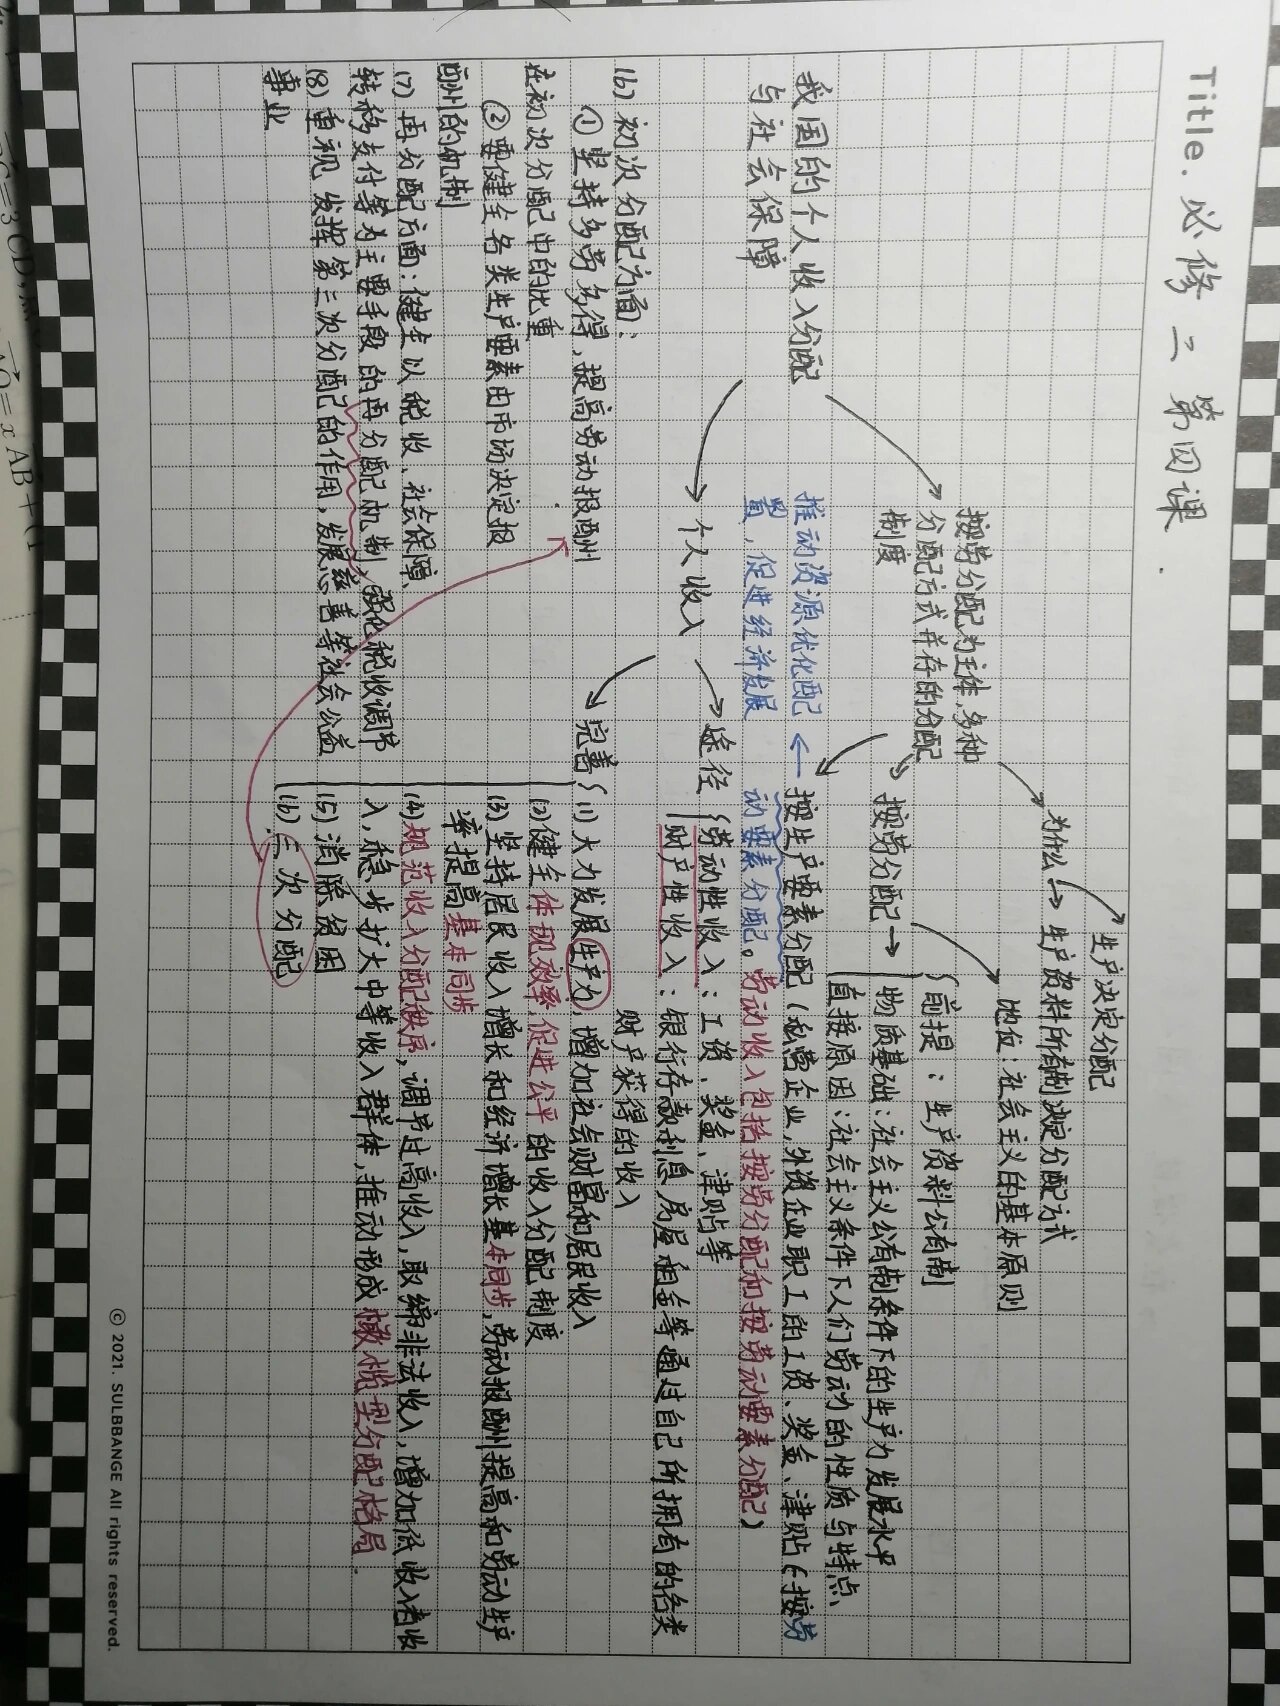 Title. 必修二 第四课
生产决定分配
为什么→生产资料所有制决定分配方式
地位:社会主义的基本原则
按劳分配为主体,多种
分配方式并存的分配
制度
前提:生产资料公有制
按劳分配→
物质基础:社会主义公有制条件下的生产力发展水平
直接原因:社会主义条件下人们劳动的性质与特点
我国的个人收入分配
与社会保障
推动资源优化配
置,促进经济发展
←按生产要素分配(私营企业,外资企业职工的工资、奖金、津贴(按劳
动要素分配。劳动收入包括按劳分配和按劳动要素分配)
个人收入
途径
劳动性收入:工资、奖金、津贴等
财产性收入:银行存款利息 房屋租金等通过自己所拥有的各类
财产获得的收入
完善
(1)大力发展生产力,增加社会财富和居民收入
(2)健全体现效率,促进公平的收入分配制度
(3)坚持居民收入增长和经济增长基本同步,劳动报酬提高和劳动生产
率提高基本同步
(4)规范收入分配秩序,调节过高收入,取缔非法收入,增加低收入者收
入,稳步扩大中等收入群体,推动形成橄榄型分配格局.
(5)消除贫困
(6)三次分配
(6)初次分配方面:
①坚持多劳多得,提高劳动报酬
在初次分配中的比重
②要健全各类生产要素由市场决定报
酬的机制
(7)再分配方面:健全以税收、社会保障
转移支付等为主要手段的再分配机制,强化税收调节
(8)重视发挥第三次分配的作用,发展慈善等社会公益
事业
© 2021. SULBBANGE All rights reserved.